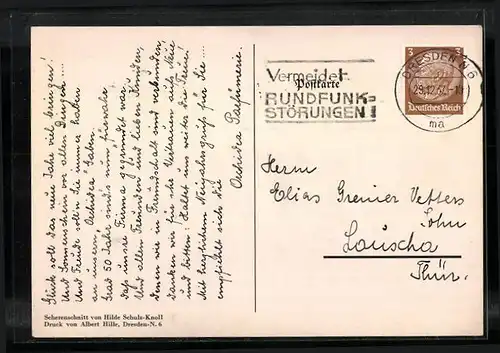 Glück soll das neue Jahr viel bringen!
Und Sonnenschein vor allen Dingen –
Und Freude sollen Sie immer haben
an unsern "Orchidea" Gaben.
Grad 50 Jahr sind's nun fürwahr
dass unsre Firma gegründet war.
Und allen Freunden und lieben Kunden,
denen wir in Freundschaft sind verbunden,
danken wir für ihr Vertrauen aufs Neue
und bitten: Haltet uns weiter die Treue!
Mit herzlichem Neujahrsgruß für Sie
empfiehlt sich die
Orchidea Parfümerie.
Scherenschnitt von Hilde Schulz-Knoll
Druck von Albert Hille, Dresden-N. 6
Vermeidet
Postkarte
RUNDFUNK=
STÖRUNGEN!
DRESDEN N 6
29.12.37
ma
3
Deutsches Reich
Herrn
Elias Greiner Vetters
Sohn
Lauscha
Thür.